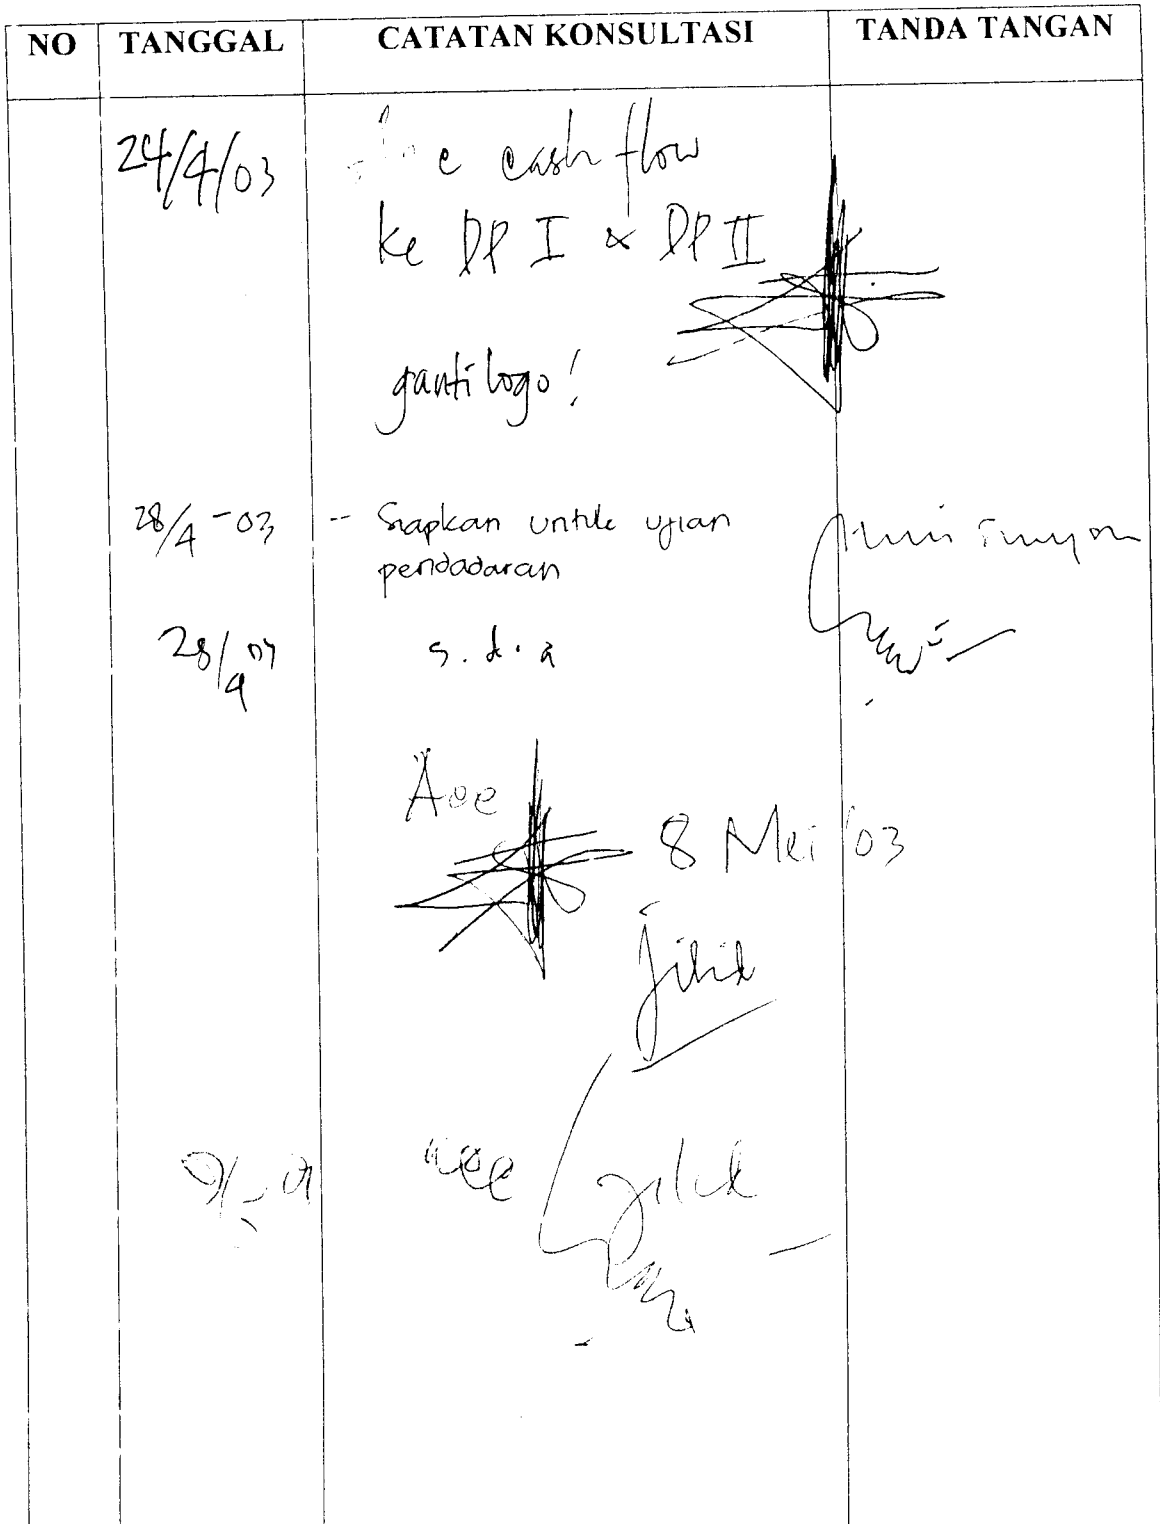 NO TANGGAL CATATAN KONSULTASI TANDA TANGAN
24/4/03 cash flow
ke DP I & DP II
ganti logo!
28/4-03 -- Siapkan untuk ujian
pendadaran
28/4 s.d.a
8 Mei '03
jilid
jilid